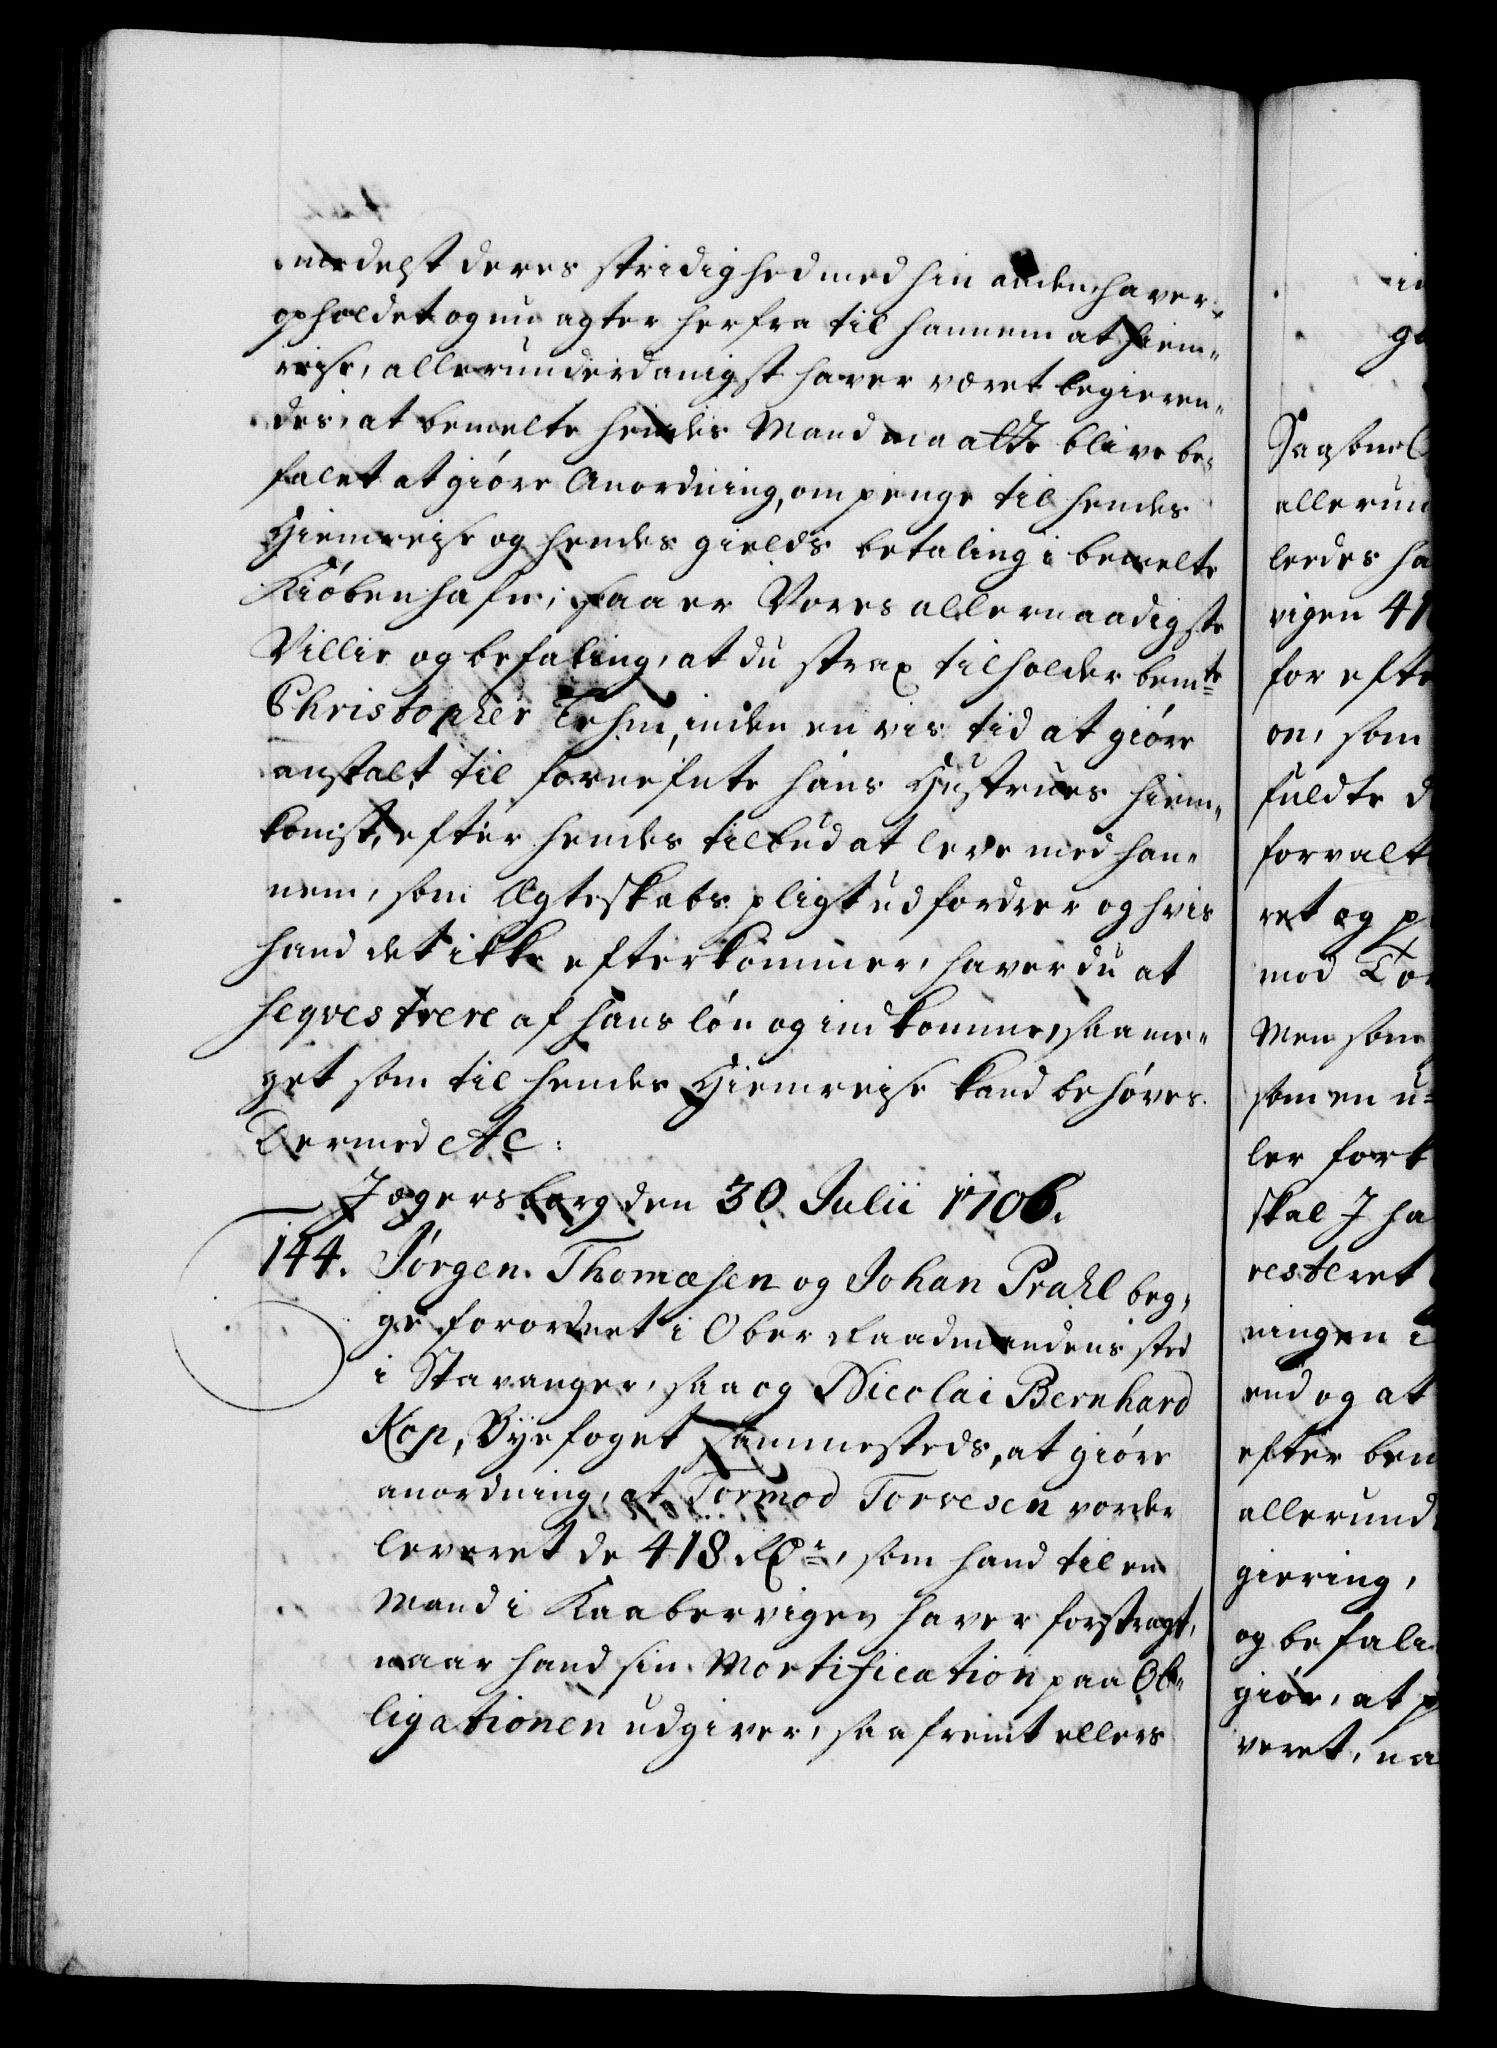 medelst deres stridighed med hin anden, haver
opholdet og nu agter herfra til hannem at hiem-
reise, allerunderdanigst haver været begieren-
des, at bemelte hendes Mand maatte blive be-
falet at giöre Anordning, om penge til hendes
Hiemreise og hendes gields betaling i bemelte
Kiöbenhafn; Saa er Vores allernaadigste
Villie og befaling, at du strax tilholder bemte
Christopher Tehm, inden en vis tid at giöre
anstalt til fornefnte hans Hustrues hiem-
komst, efter hendes tilbud at leve med han-
nem, som Ægteskabs pligt udfordrer og hvis
hand det ikke efterkommer, haver du at
seqvestrere af hans lön og indkomme, saa me-
get som til hendes Hiemreise kand behöves.
Dermed etc:
Jægersborg den 30. Julii 1706.
144. Jörgen Thomæsen og Johan Prahl beg-
ge forordnet i Ober Raadmandens sted
i Stavanger, saa og Nicolai Bernhard
Kop, Byefoget sammesteds, at giöre
anordning, at Tormod Torvesen vorder
leveret de 418 Rdr, som hand til en
Mand i Kaabervigen haver forstragt,
naar hand sin Mortification paa Ob-
ligationen udgiver, saafremt ellers
allerun
leedes ha
vigen 41
for efte
on, som
fuldte d
forvalt
ret og p
mod Tor
Men som
som en u-
ler fort
skal J ha
resteret
ningen i
end og at
efter bem
allerund
giering,
og befali
giör, at p
veret, na